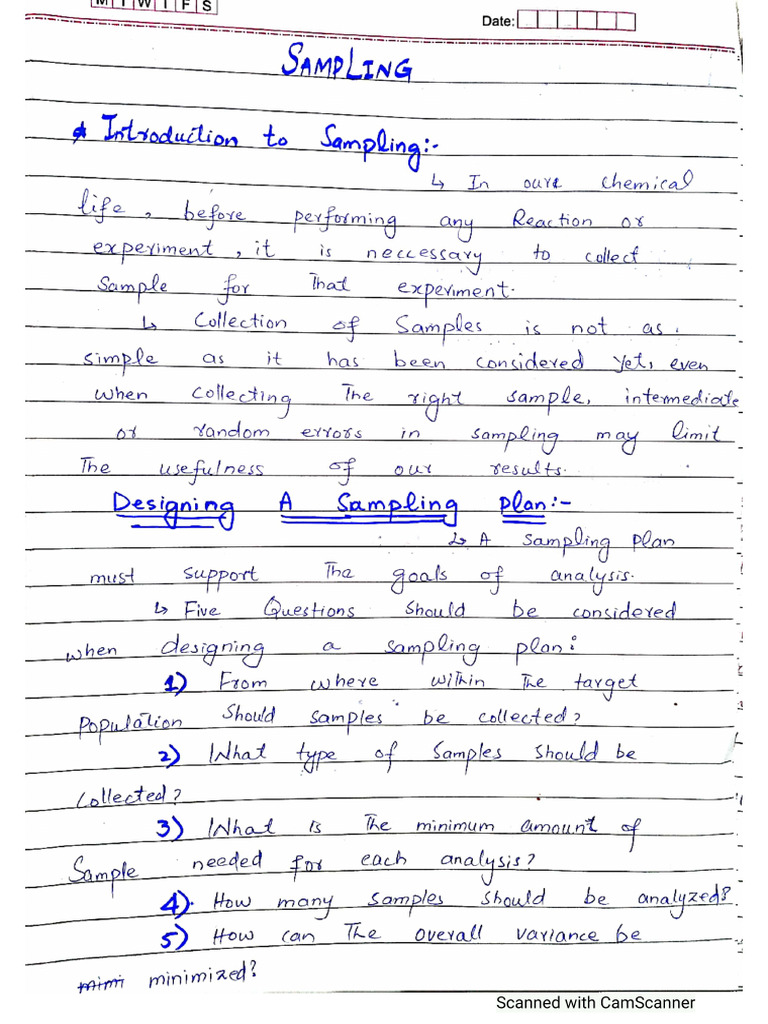 M T W T F S
Date:
SAMPLING
* Introduction to Sampling:-
↳ In oure chemical
life, before performing any Reaction or
experiment, it is neccessary to collect
Sample for That experiment.
↳ Collection of Samples is not as
simple as it has been considered yet, even
when collecting The right sample, intermediate
or random errors in sampling may limit
The usefulness of our results.
Designing A Sampling plan:-
↳ A sampling plan
must support The goals of analysis.
↳ Five Questions should be considered
when designing a sampling plan:
1) From where within The target
Population Should samples be collected?
2) What type of Samples should be
collected?
3) What is The minimum amount of
Sample needed for each analysis?
4). How many samples should be analyzed?
5) How can The overall variance be
mimi minimized?
Scanned with CamScanner